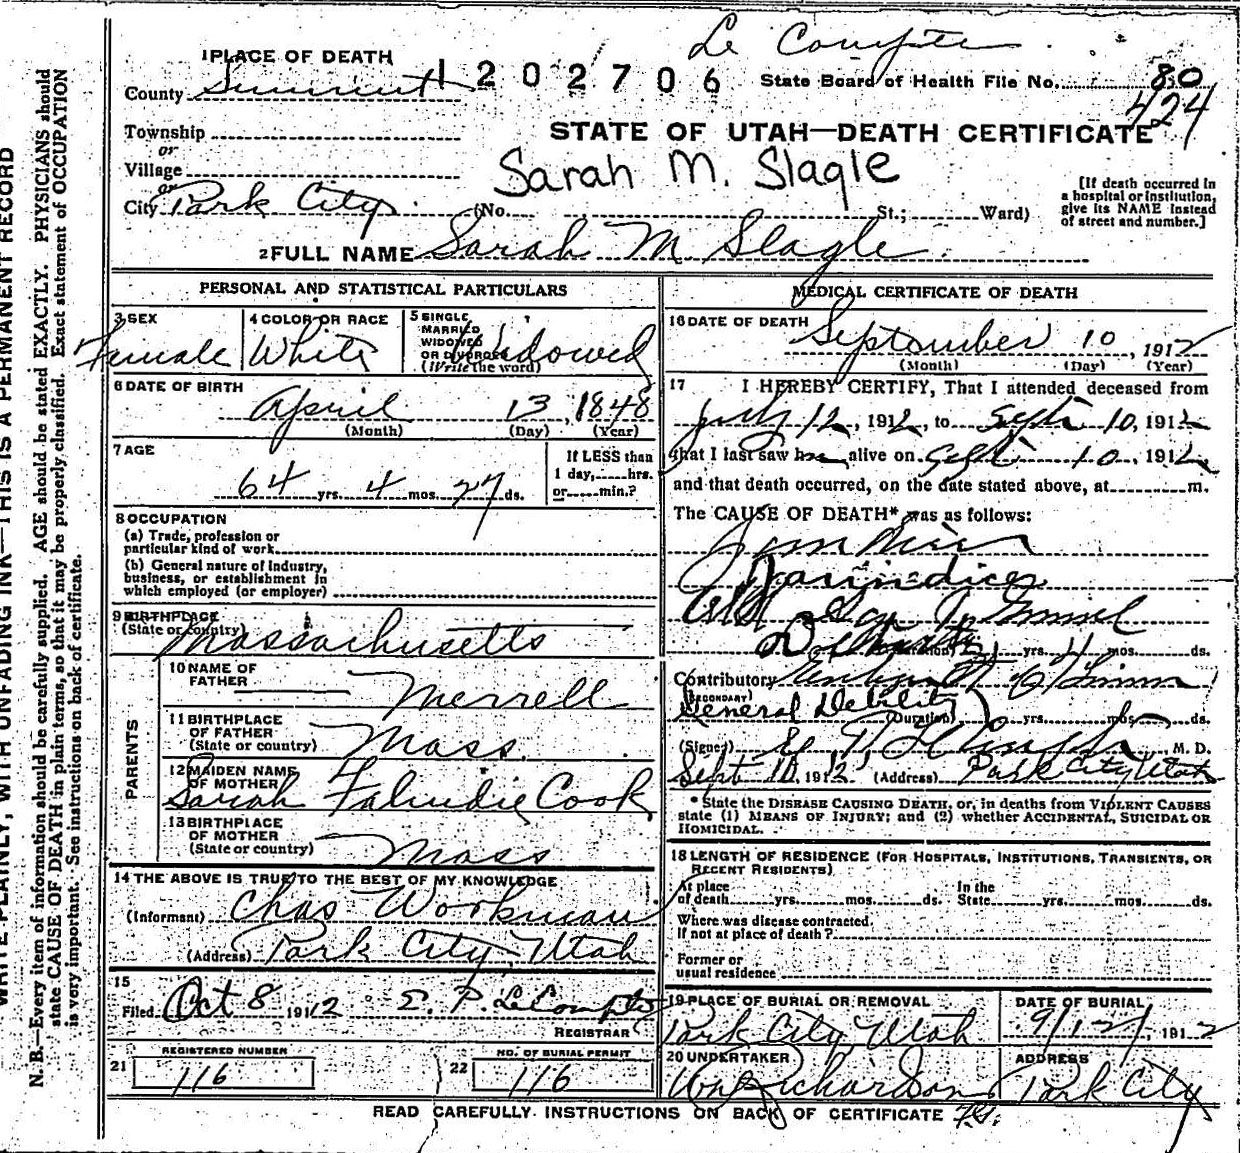 Le Compte
1 PLACE OF DEATH
1202706
State Board of Health File No. 80
424
County Summit
Township
or
STATE OF UTAH—DEATH CERTIFICATE
Village
or
Sarah M. Slagle
City Park City (No. St.; Ward)
[If death occurred in a hospital or institution, give its NAME instead of street and number.]
2 FULL NAME Sarah M Slagle
PERSONAL AND STATISTICAL PARTICULARS
3 SEX
Female
4 COLOR OR RACE
White
5 SINGLE, MARRIED WIDOWED OR DIVORCED
(Write the word)
Widowed
6 DATE OF BIRTH
April 13, 1848
(Month) (Day) (Year)
7 AGE
64 yrs. 4 mos. 27 ds.
If LESS than 1 day, hrs. or min.?
8 OCCUPATION
(a) Trade, profession or particular kind of work
(b) General nature of Industry, business, or establishment in which employed (or employer)
9 BIRTHPLACE
(State or country)
Massachusetts
PARENTS
10 NAME OF FATHER
Merrell
11 BIRTHPLACE OF FATHER
(State or country)
Mass.
12 MAIDEN NAME OF MOTHER
Sarah Cook
13 BIRTHPLACE OF MOTHER
(State or country)
Mass
14 THE ABOVE IS TRUE TO THE BEST OF MY KNOWLEDGE
(Informant) Chas Workman
(Address) Park City, Utah
15
Filed Oct 8 1912 E. P. LeCompte
REGISTRAR
REGISTERED NUMBER
21 116
NO. OF BURIAL PERMIT
22 116
MEDICAL CERTIFICATE OF DEATH
16 DATE OF DEATH
September 10, 1912
(Month) (Day) (Year)
17 I HEREBY CERTIFY, That I attended deceased from
July 12, 1912, to Sept 10, 1912
that I last saw her alive on Sept 10, 1912,
and that death occurred, on the date stated above, at m.
The CAUSE OF DEATH* was as follows:
Jaundice
(Duration) yrs. mos. ds.
Contributory
(SECONDARY)
General Debility
(Duration) yrs. mos. ds.
(Signed) M. D.
Sept 10, 1912 (Address) Park City Utah
* State the DISEASE CAUSING DEATH, or, in deaths from VIOLENT CAUSES
state (1) MEANS OF INJURY; and (2) whether ACCIDENTAL, SUICIDAL OR
HOMICIDAL.
18 LENGTH OF RESIDENCE (FOR HOSPITALS, INSTITUTIONS, TRANSIENTS, OR
RECENT RESIDENTS)
At place of death yrs. mos. ds. In the State yrs. mos. ds.
Where was disease contracted
If not at place of death?
Former or
usual residence
19 PLACE OF BURIAL OR REMOVAL
Park City, Utah
DATE OF BURIAL
9/12/, 1912
20 UNDERTAKER
Wm Richardson
ADDRESS
Park City
READ CAREFULLY INSTRUCTIONS ON BACK OF CERTIFICATE
WRITE PLAINLY, WITH UNFADING INK—THIS IS A PERMANENT RECORD
N. B.—Every item of information should be carefully supplied. AGE should be stated EXACTLY. PHYSICIANS should
state CAUSE OF DEATH in plain terms, so that it may be properly classified. Exact statement of OCCUPATION
is very important. See instructions on back of certificate.